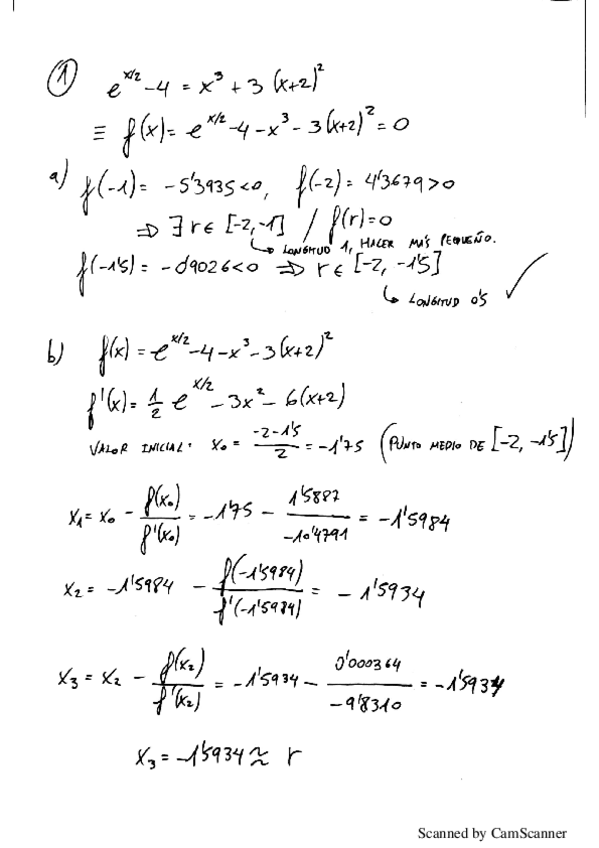 ① e^{x/2} - 4 = x³ + 3 (x+2)²
≡ f(x) = e^{x/2} - 4 - x³ - 3(x+2)² = 0
a) f(-1) = -5'3935 < 0, f(-2) = 4'3679 > 0
⇒ ∃ r ∈ [-2, -1] / f(r) = 0
↳ LONGITUD 1, HACER MÁS PEQUEÑO.
f(-1'5) = -0'9026 < 0 ⇒ r ∈ [-2, -1'5]
↳ LONGITUD 0'5 ✓
b) f(x) = e^{x/2} - 4 - x³ - 3(x+2)²
f'(x) = 1/2 e^{x/2} - 3x² - 6(x+2)
VALOR INICIAL: x₀ = (-2-1'5)/2 = -1'75 (PUNTO MEDIO DE [-2, -1'5])
x₁ = x₀ - f(x₀)/f'(x₀) = -1'75 - 1'5887/-10'4791 = -1'5984
x₂ = -1'5984 - f(-1'5984)/f'(-1'5984) = -1'5934
x₃ = x₂ - f(x₂)/f'(x₂) = -1'5934 - 0'000364/-9'8310 = -1'5934
x₃ = -1'5934 ≈ r
Scanned by CamScanner